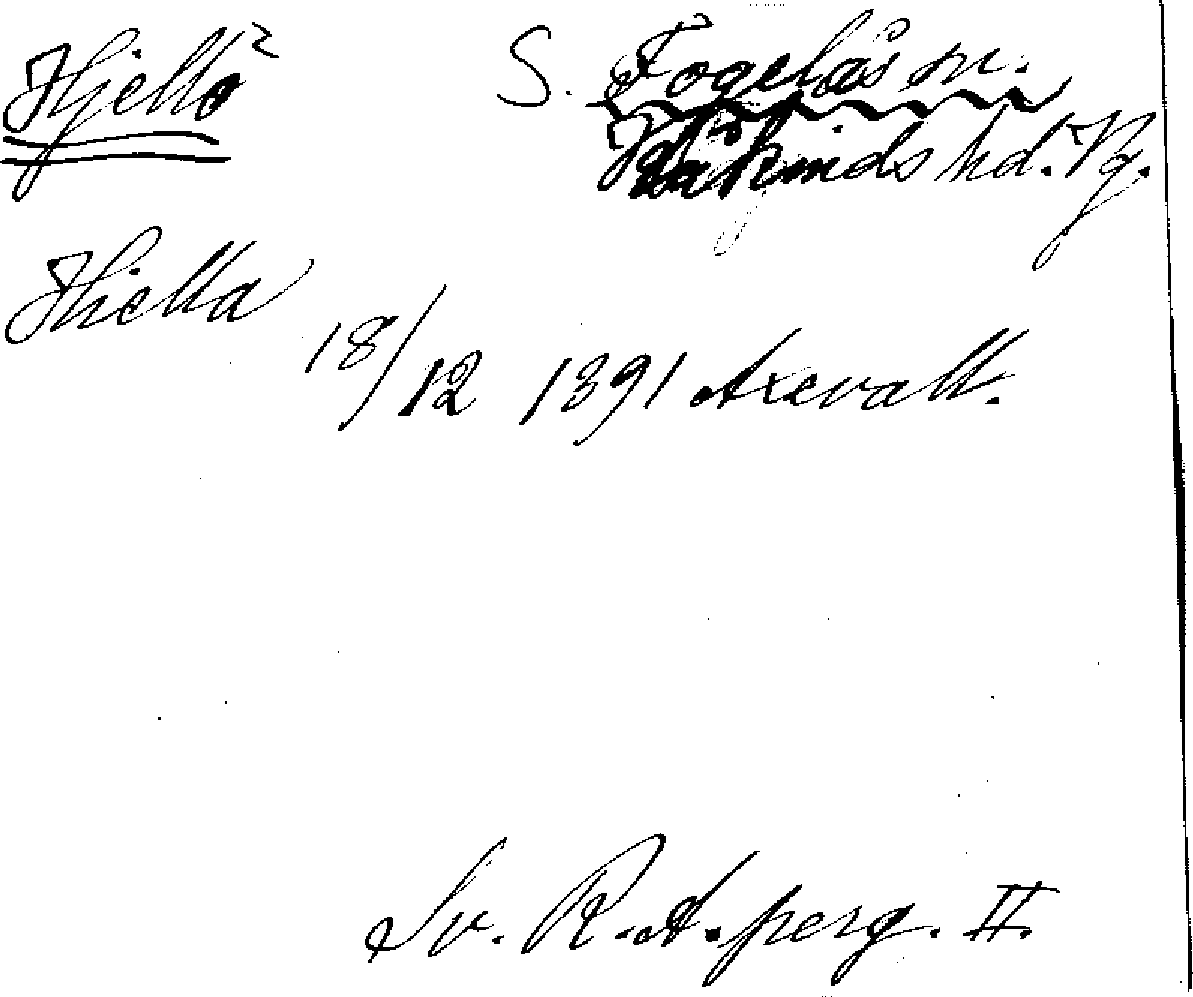 Hjello² S. Fogelås sn.
Kåkinds hd. Vg.
Hiella
18/12 1391 Axevall.
Sv. R. A. perg. II.